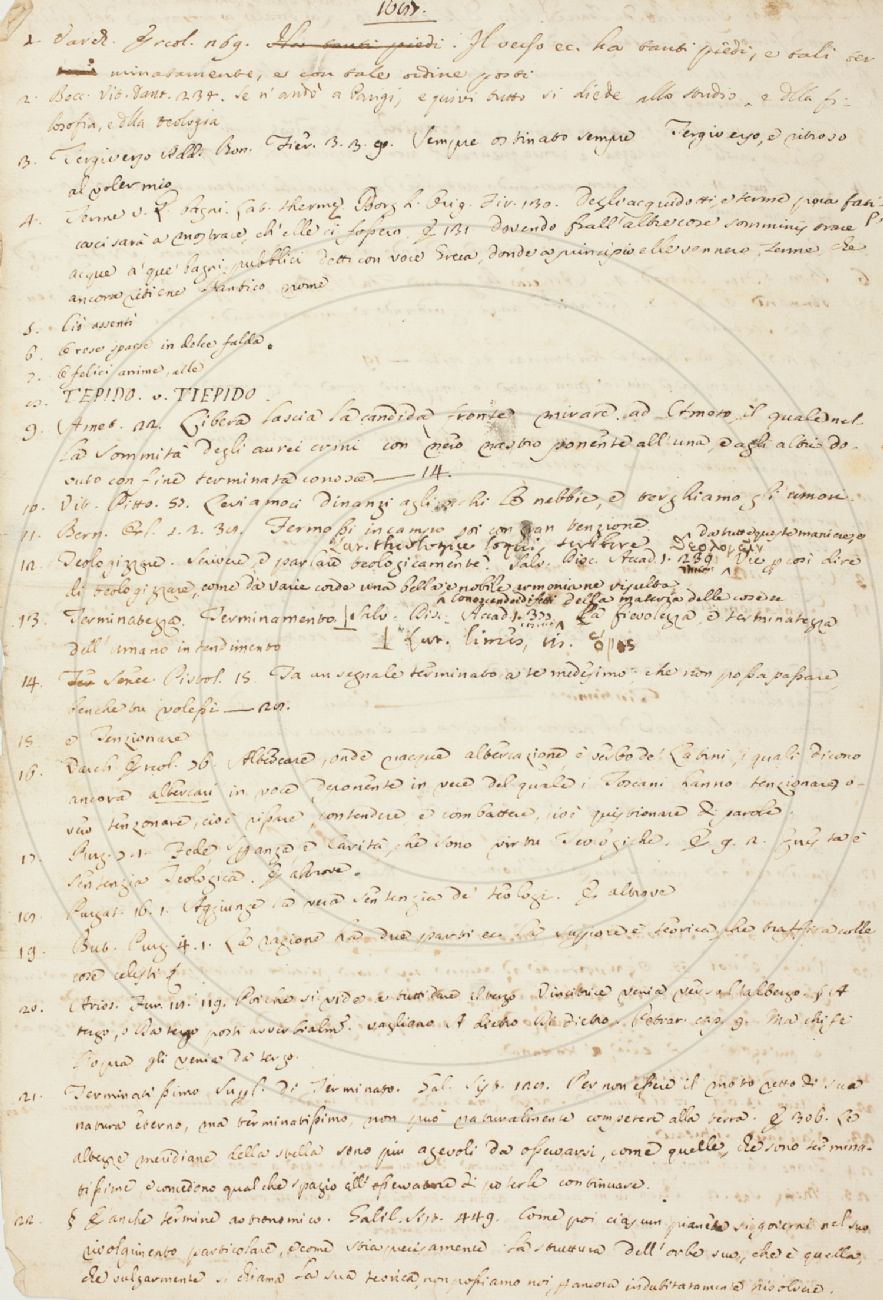 1. Varch. Ercol. 269. Il verso ec. ha tanti piedi, e tali ter
minatamente, e con tale ordine posti
2. Bocc. Vit. Dant. 234. Se n'andò a Parigi, e quivi tutto si diede allo studio, e della fi-
losofia, e della teologia
3. Tergiverso Add. Bon. Fier. 3. 3. 9. Sempre ostinato sempre Tergiverso, e ritroso
al voler mio
4. Terme v. L. bagni. Lat. thermę. Borg. L. Orig. Fir. 130. Degli acquidotti, e terme poca fati-
caci sarà a mostrare ch'elle ci fossero. E 131 dovendo fra ll'altre cose somministrare
acque a que' bagni pubblici detti con voce Greca, donde a principio elle vennero, terme che
ancora ritiene l'antico nome
5. Ciò assenti
6. Le rose sparse in dolce falda.
7. Le felici anime, alle
8. TEPIDO. v. TIEPIDO.
9. Amet. 22. Libera lascia la candida fronte mirare ad Ameto, il quale nel-
la sommità degli aurei crini con nero nastro ponente all'una, e agli altri do-
vuto con fine terminata conosce — 14.
10. Vit. Pitt. 50. Leviamoci dinanzi agli occhi le nebbie, e terghiamo gli umori
11. Bern. Orl. 1. 2. 30. Fermossi in campo poi con gran tenzione
Lat. theologice loqui, scribere
Da tutte queste maniere
12. Teologizzare. Scrivere, e parlare teologicamente. Salv. Disc. Accad. 1. 239. Vie p così dire
di teologizzare, come da varie corde una bella e nobile armonia ne risulta.
Conoscendo i difetti della materia delle cose
13. Terminatezza. Terminamento. Salv. Dis. Accad. 1. 30. La fievolezza e terminatezza
dell'umano intendimento
Lat. limes, itis.
14. Senec. Pistol. 15. Fa un segnale terminato a te medesimo che non possa passare,
benche tu volessi — 20.
15. e Tenzionare
16. Varch. Ercol. 76. Altercare, onde nacque altercazione è verbo de' Latini i quali dicono
ancora altercari in voce deponente in vece del quale i Toscani hanno tenzionare, o-
vero tenzonare, cioè rissare, contendere, e combattere, cioè quistionare di parole.
17. Purg. 7. 1. Fede, Speranza e Carità, che sono virtù Teologiche. E 9. 2. Questa è
Sentenzia Teologica. E altrove.
18. Purgat. 16. 1. Aggiunge la vera sentenzia de' teologi. E altrove
19. But. Purg. 4. 1. La ragione ha due parti ec. La superiore è teorica, che traffica colle
cose celesti
20. Arios. Fur. 18. 119. Poichè si vide a tutti dare il tergo Vincitrice venia vers'al'albergo. § A
tergo, o Da tergo posti avverbialm. vagliano A dietro Di dietro. Petrar. cap. 9. Ma chi se
l'opra gli venia da tergo.
21. Terminatissimo Supl. di Terminato. Gal. Sist. 128. Per non essere il moto retto di sua
natura eterno, ma terminatissimo, non può naturalmente competere alla terra. E 306. Le
altezze meridiane della stella sono più agevoli da osservarsi, come quelle, che sono termina-
tissime e concedono qualche spazio all'osservatore di poterle continuare.
22. § È anche termine astronomico. Galil. Sist. 449. Come poi ciascun pianeta si governi nel suo
rivolgimento particolare, e come stia precisamente la struttura dell'orbe suo, che è quella,
che vulgarmente si chiama la sua teorica, non possiamo noi p ancora indubitatamente risolvere.